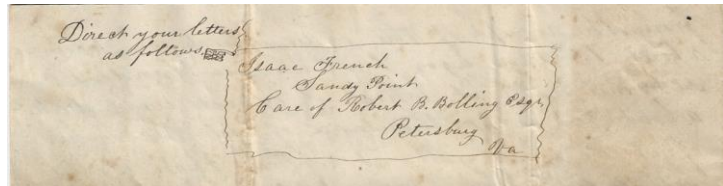 Direct your letters
as follows
Isaac French
Sandy Point
Care of Robert B. Bolling Esqr
Petersburg
Va